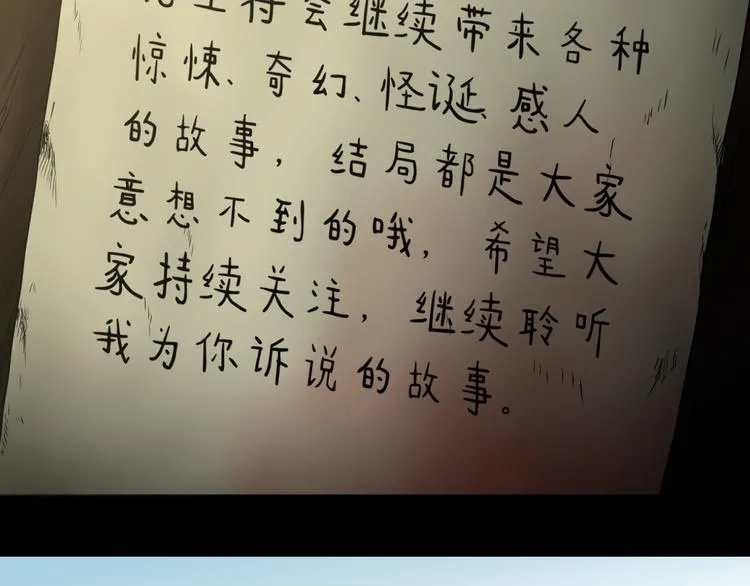 会继续带来各种
惊悚、奇幻、怪诞、感人
的故事，结局都是大家
意想不到的哦，希望大
家持续关注，继续聆听
我为你诉说的故事。